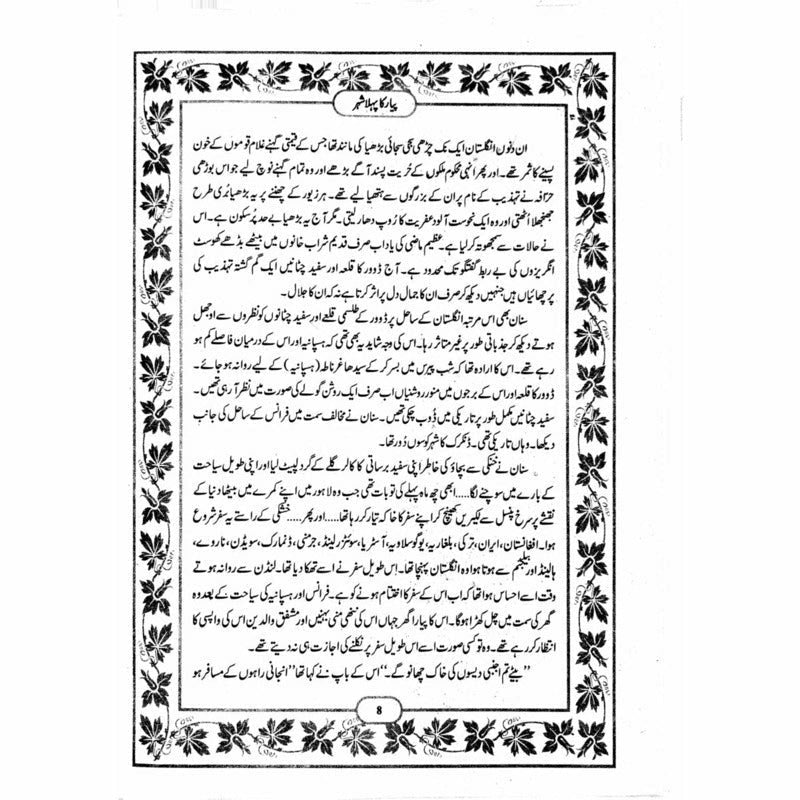 پیار کا پہلا شہر
ان دنوں انگلستان ایک نک چڑھی سجی سجائی بڑھیا کی مانند تھا جس کے قیمتی گہنے غلام قوموں کے خون
پسینے کا ثمر تھے۔ اور پھر انہی محکوم ملکوں کے حُریت پسند آگے بڑھے اور وہ تمام گہنے نوچ لیے جو اس بوڑھی
حرّافہ نے تہذیب کے نام پر ان کے بزرگوں سے ہتھیا لیے تھے۔ ہر زیور کے چھننے پر یہ بڑھیا بُری طرح
جھنجھلا اُٹھتی اور وہ ایک نحوست آلود عفریت کا رُوپ دھار لیتی۔ مگر آج یہ بڑھیا بے حد پُرسکون ہے۔ اس
نے حالات سے سمجھوتہ کر لیا ہے۔ عظیم ماضی کی یاد اب صرف قدیم شراب خانوں میں بیٹھے بڈھے کھوسٹ
انگریزوں کی بے ربط گفتگو تک محدود ہے۔ آج ڈوور کا قلعہ اور سفید چٹانیں ایک گم گشتہ تہذیب کی
پرچھائیاں ہیں جنہیں دیکھ کر صرف ان کا جمال دل پر اثر کرتا ہے نہ کہ ان کا جلال۔
سنان بھی اس مرتبہ انگلستان کے ساحل پر ڈوور کے طلسمی قلعے اور سفید چٹانوں کو نظروں سے اوجھل
ہوتے دیکھ کر جذباتی طور پر غیر متاثر رہا۔ اس کی وجہ شاید یہ بھی تھی کہ ہسپانیہ اور اس کے درمیان فاصلے کم ہو
رہے تھے۔ اس کا ارادہ تھا کہ شب پیرس میں بسر کر کے سیدھا غرناطہ (ہسپانیہ) کے لیے روانہ ہو جائے۔
ڈوور کا قلعہ اور اس کے برجوں میں منور روشنیاں اب صرف ایک روشن گولے کی صورت میں نظر آ رہی تھیں۔
سفید چٹانیں مکمل طور پر تاریکی میں ڈوب چکی تھیں۔ سنان نے مخالف سمت میں فرانس کے ساحل کی جانب
دیکھا۔ وہاں تاریکی تھی۔ ڈنکرک کا شہر کوسوں دُور تھا۔
سنان نے خنکی سے بچاؤ کی خاطر اپنی سفید برساتی کا کالر گلے کے گرد لپیٹ لیا اور اپنی طویل سیاحت
کے بارے میں سوچنے لگا.....ابھی چھ ماہ پہلے کی تو بات تھی جب وہ لاہور میں اپنے کمرے میں بیٹھا دنیا کے
نقشے پر سرخ پنسل سے لکیریں کھینچ کر اپنے سفر کا خاکہ تیار کر رہا تھا.....اور پھر.....خشکی کے راستے یہ سفر شروع
ہوا۔ افغانستان، ایران، ترکی، بلغاریہ، یوگوسلاویہ، آسٹریا، سوئٹزرلینڈ، جرمنی، ڈنمارک، سویڈن، ناروے،
ہالینڈ اور بیلجیم سے ہوتا ہوا وہ انگلستان پہنچا تھا۔ اس طویل سفر نے اسے تھکا دیا تھا۔ لنڈن سے روانہ ہوتے
وقت اسے احساس ہوا تھا کہ اب اس کے سفر کا اختتام ہونے کو ہے۔ فرانس اور ہسپانیہ کی سیاحت کے بعد وہ
گھر کی سمت میں چل کھڑا ہوگا۔ اس کا پیارا گھر جہاں اس کی ننھی منی بہنیں اور مشفق والدین اس کی واپسی کا
انتظار کر رہے تھے۔ وہ تو کسی صورت اسے اس طویل سفر پر نکلنے کی اجازت ہی نہ دیتے تھے۔
"بیٹے تم اجنبی دیسوں کی خاک چھانو گے۔" اس کے باپ نے کہا تھا "انجانی راہوں کے مسافر ہو
8